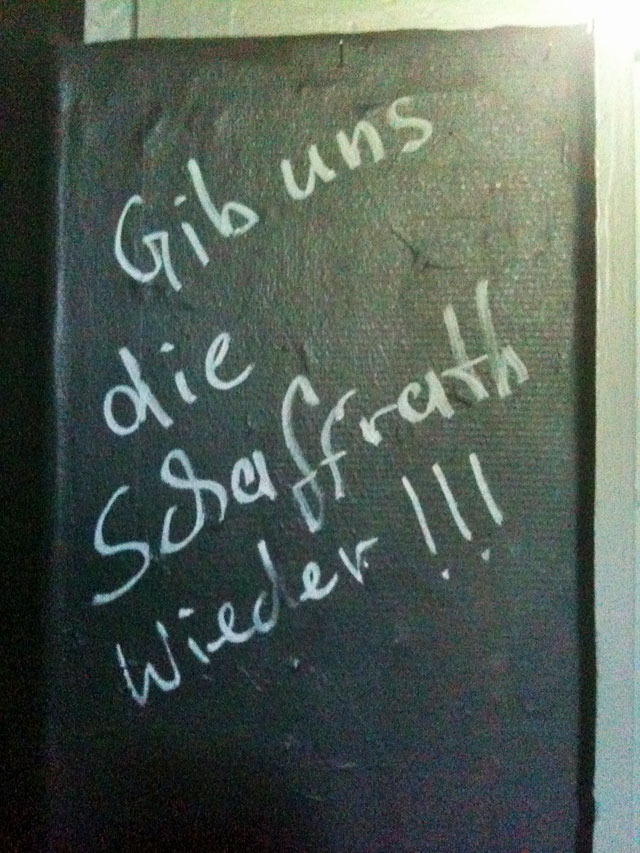 Gib uns
die
Schaffrath
Wieder!!!